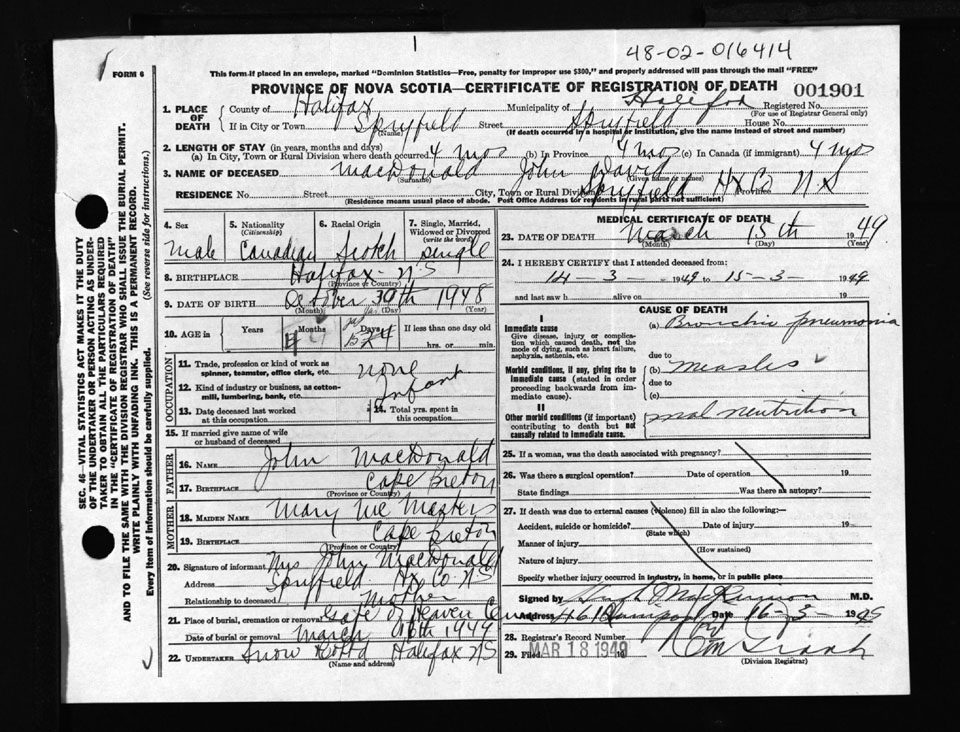 48-02-016414
FORM 6
This form if placed in an envelope, marked "Dominion Statistics—Free, penalty for improper use $300," and properly addressed will pass through the mail "FREE"
PROVINCE OF NOVA SCOTIA—CERTIFICATE OF REGISTRATION OF DEATH 001901
1. PLACE OF DEATH County of Halifax Municipality of Halifax Registered No.
(For use of Registrar General only)
If in City or Town Spryfield Street Spryfield House No.
(Name) (If death occurred in a hospital or institution, give the name instead of street and number)
2. LENGTH OF STAY (in years, months and days)
(a) In City, Town or Rural Division where death occurred 4 mos (b) In Province 4 mos (c) In Canada (if immigrant) 4 mos
3. NAME OF DECEASED MacDonald John David
(Surname) (Given name or names)
RESIDENCE No. Street City, Town or Rural Division Spryfield Hx Co NS
Province
(Residence means usual place of abode. Post Office Address for residents in rural parts not sufficient)
4. Sex Male
5. Nationality (Citizenship) Canadian
6. Racial Origin Scotch
7. Single, Married, Widowed or Divorced (write the word) Single
8. BIRTHPLACE Halifax NS
(Province or Country)
9. DATE OF BIRTH October 1948
(Month) (Year)
10. AGE in Years Months Days If less than one day old
hrs. or min.
OCCUPATION
11. Trade, profession or kind of work as spinner, teamster, office clerk, etc. none
12. Kind of industry or business, as cotton-mill, lumbering, bank, etc. Infant
13. Date deceased last worked at this occupation
14. Total yrs. spent in this occupation
15. If married give name of wife or husband of deceased
FATHER
16. Name John MacDonald
17. Birthplace Cape Breton
(Province or Country)
MOTHER
18. Maiden Name Mary Mc Masters
19. Birthplace Cape Breton
(Province or Country)
20. Signature of informant Mrs John MacDonald
Address Spryfield Hx Co NS
Relationship to deceased Mother
21. Place of burial, cremation or removal Gate of Heaven Cem
Date of burial or removal March 16th 1949
22. UNDERTAKER Snow Halifax NS
(Name and address)
MEDICAL CERTIFICATE OF DEATH
23. DATE OF DEATH March 15th 1949
(Month) (Day) (Year)
24. I HEREBY CERTIFY that I attended deceased from:
14-3-1949 to 15-3-1949
and last saw h alive on 19
CAUSE OF DEATH
I
Immediate cause
Give disease, injury or complication which caused death, not the mode of dying, such as heart failure, asphyxia, asthenia, etc.
(a) Bronchio pneumonia
due to
Morbid conditions, if any, giving rise to immediate cause (stated in order proceeding backwards from immediate cause).
(b) Measles
due to
(c)
II
Other morbid conditions (if important) contributing to death but not causally related to immediate cause.
mal neutrition
25. If a woman, was the death associated with pregnancy?
26. Was there a surgical operation? Date of operation 19
State findings Was there an autopsy?
27. If death was due to external causes (violence) fill in also the following:
Accident, suicide or homicide? Date of injury 19
(State which)
Manner of injury
(How sustained)
Nature of injury
Specify whether injury occurred in industry, in home, or in public place
Signed by Hugh MacKinnon M.D.
Address Date 16-3-19
28. Registrar's Record Number
29. Filed MAR 18 1949 19
(Division Registrar)
SEC. 46—VITAL STATISTICS ACT MAKES IT THE DUTY
OF THE UNDERTAKER OR PERSON ACTING AS UNDER-
TAKER TO OBTAIN ALL THE PARTICULARS REQUIRED
IN THE "CERTIFICATE OF REGISTRATION OF DEATH"
AND TO FILE THE SAME WITH THE DIVISION REGISTRAR WHO SHALL ISSUE THE BURIAL PERMIT.
WRITE PLAINLY WITH UNFADING INK. THIS IS A PERMANENT RECORD.
Every item of information should be carefully supplied. (See reverse side for instructions.)